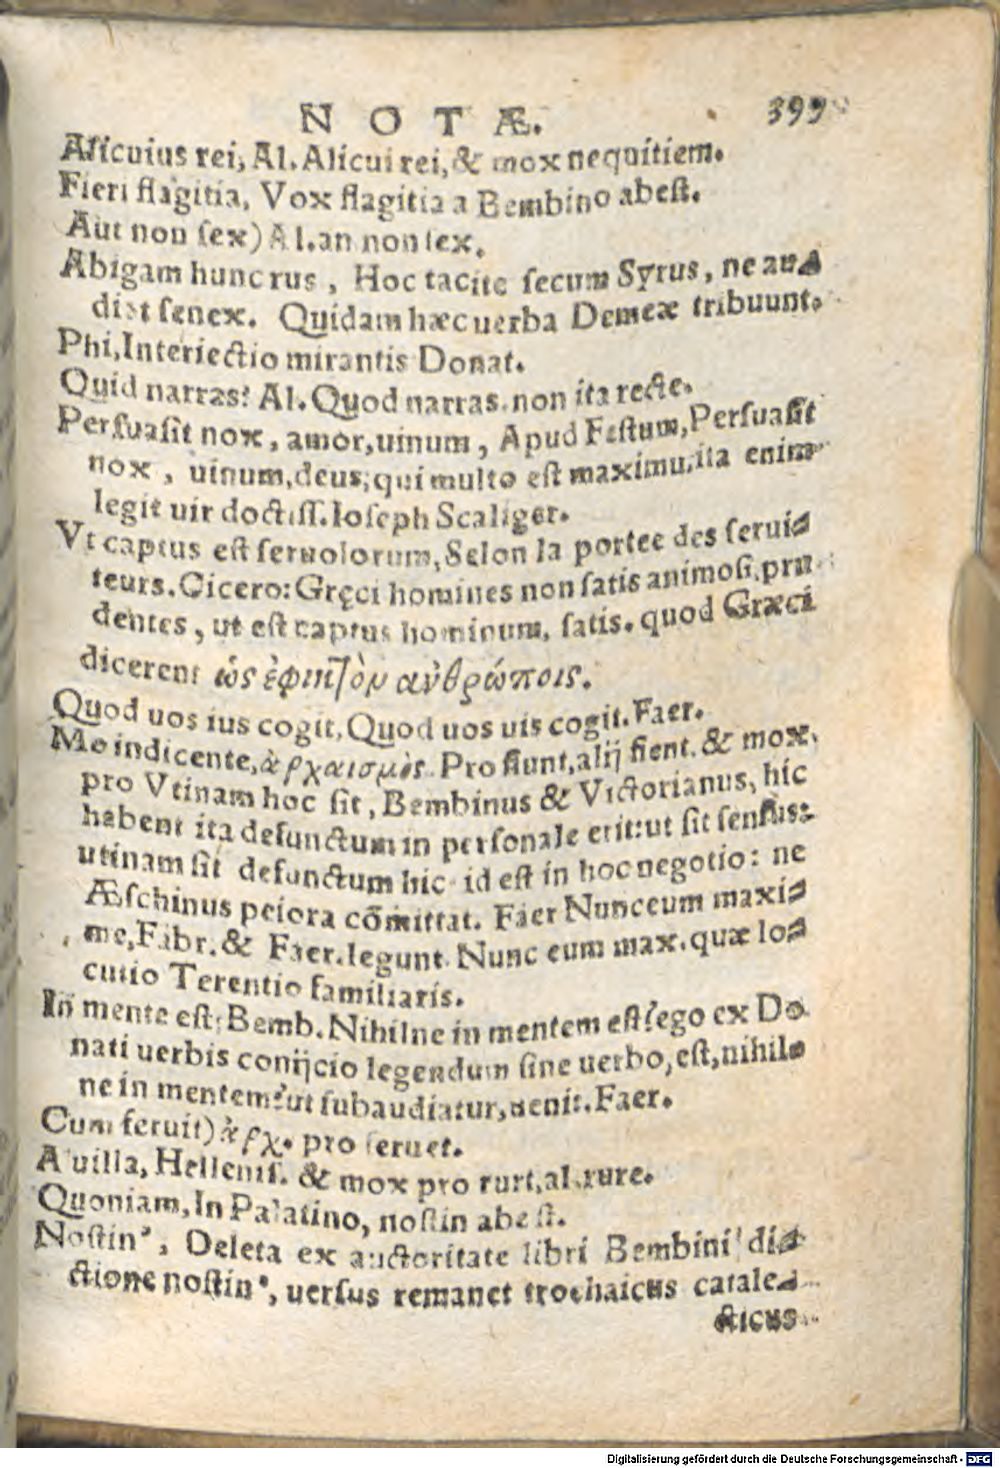 NOTÆ. 399
Alicuius rei, Al. Alicui rei, & mox nequitiem.
Fieri flagitia, Vox flagitia a Bembino abest.
Aut non sex) Al. an non sex.
Abigam hunc rus, Hoc tacite secum Syrus, ne au-
diat senex. Quidam hæc uerba Demeæ tribuunt.
Phi, Interiectio mirantis Donat.
Quid narras? Al. Quod narras. non ita recte.
Persuasit nox, amor, uinum, Apud Festum, Persuasit
nox, uinum, deus, qui multo est maximu, ita enim
legit uir doctiss. Ioseph Scaliger.
Vt captus est seruolorum, Selon la portee des serui-
teurs. Cicero: Gręci homines non satis animosi, pru
dentes, ut est captus hominum, satis. quod Græci
dicerent ὡς ἐφικτὸν ανθρώποις.
Quod uos ius cogit, Quod uos uis cogit. Faer.
Me indicente, ἀρχαισμὸς. Pro fiunt, alij fient. & mox.
pro Vtinam hoc sit, Bembinus & Victorianus, hic
habent ita defunctum in personale erit: ut sit sensus:
utinam sit defunctum hic id est in hoc negotio: ne
Æschinus peiora cõmittat. Faer Nunceum maxi-
me, Fabr. & Faer. legunt. Nunc eum max. quæ lo-
cutio Terentio familiaris.
In mente est, Bemb. Nihilne in mentem est? ego ex Do
nati uerbis conijcio legendum sine uerbo, est, nihil-
ne in mentem? ut subaudiatur, uenit. Faer.
Cum feruit) ἀρχ. pro feruet.
A uilla, Hellenis. & mox pro ruri, al. rure.
Quoniam, In Palatino, nostin abest.
Nostin', Deleta ex auctoritate libri Bembini di-
ctione nostin', uersus remanet trochaicus catale-
cticus
Digitalisierung gefördert durch die Deutsche Forschungsgemeinschaft - DFG